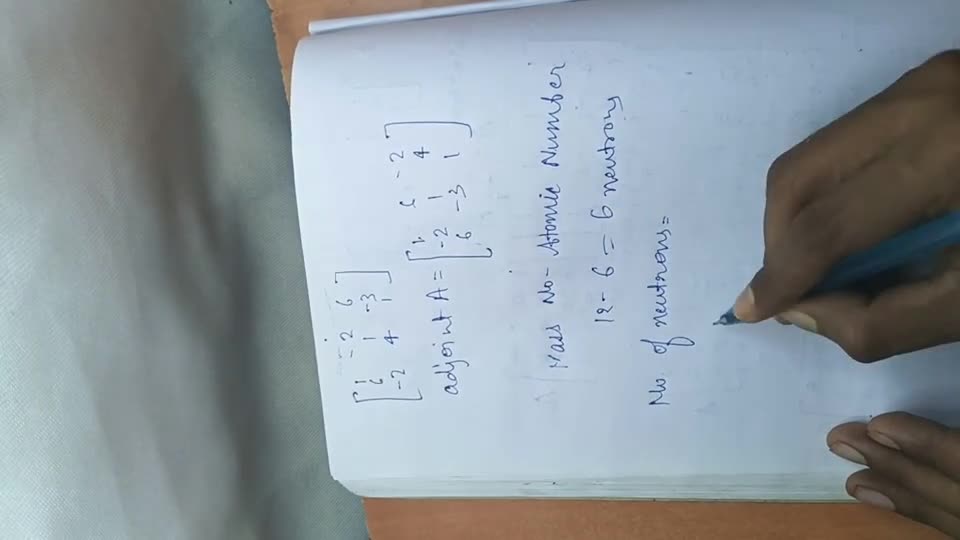 [ 1 -2 6
6 1 -3
-2 4 1 ]
adjoint A = [ 1 6 -2
-2 1 4
6 -3 1 ]
Mass No - Atomic Number
12 - 6 = 6 neutrons
No. of neutrons =